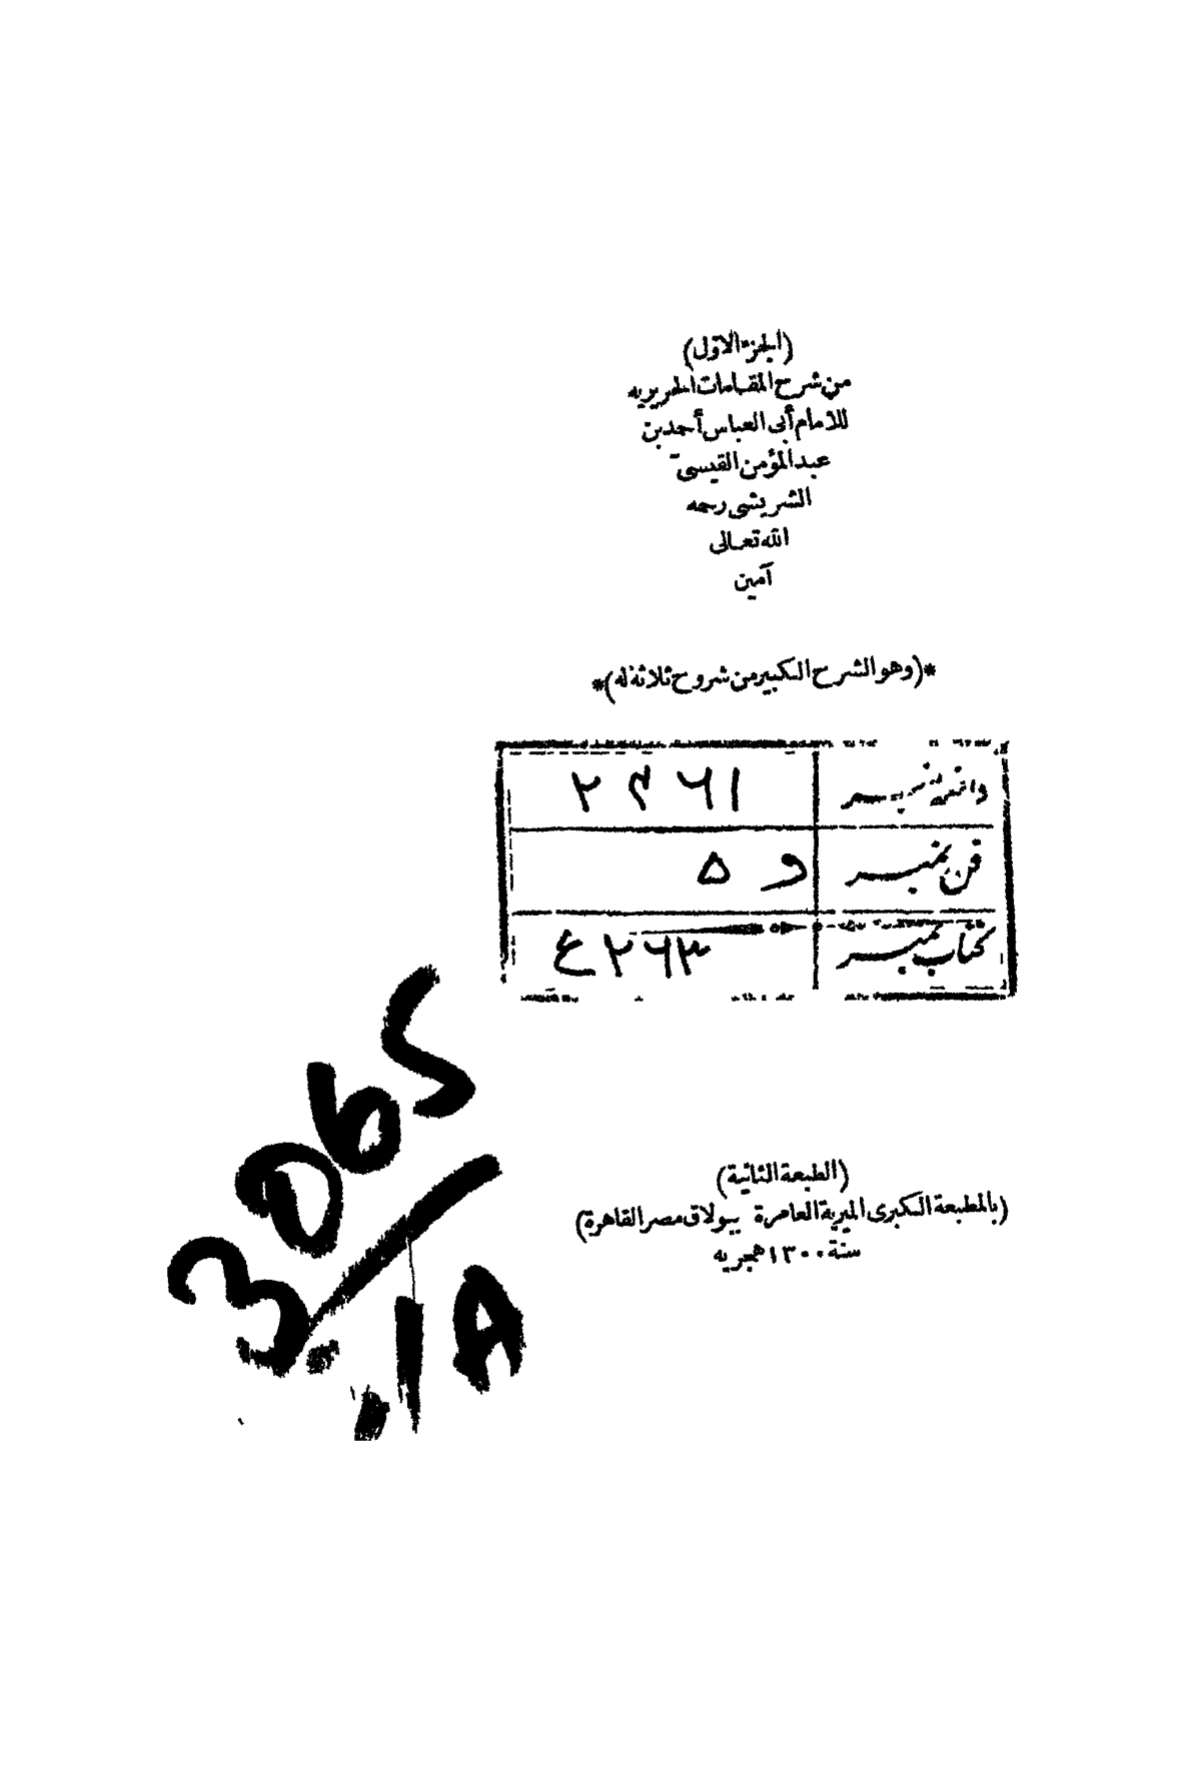 (الجزء الاوّل)
من شرح المقامات الحريريه
للامام أبى العباس أحمد بن
عبد المؤمن القيسىّ
الشريشى رحمه
الله تعالى
آمين
*(وهو الشرح الكبير من شروح ثلاثة له)*
نمبر
فن نمبر و ۵
کتاب نمبر
(الطبعة الثانية)
(بالمطبعة الكبرى الميرية العامرة ببولاق مصر القاهرة)
سنة ١٣٠٠ هجريه